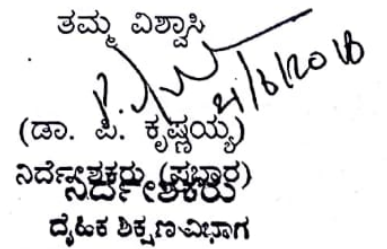 ತಮ್ಮ ವಿಶ್ವಾಸಿ
4/6/2018
(ಡಾ. ಪಿ. ಕೃಷ್ಣಯ್ಯ)
ನಿರ್ದೇಶಕರು (ಪ್ರಭಾರ)
ನಿರ್ದೇಶಕರು
ದೈಹಿಕ ಶಿಕ್ಷಣ ವಿಭಾಗ